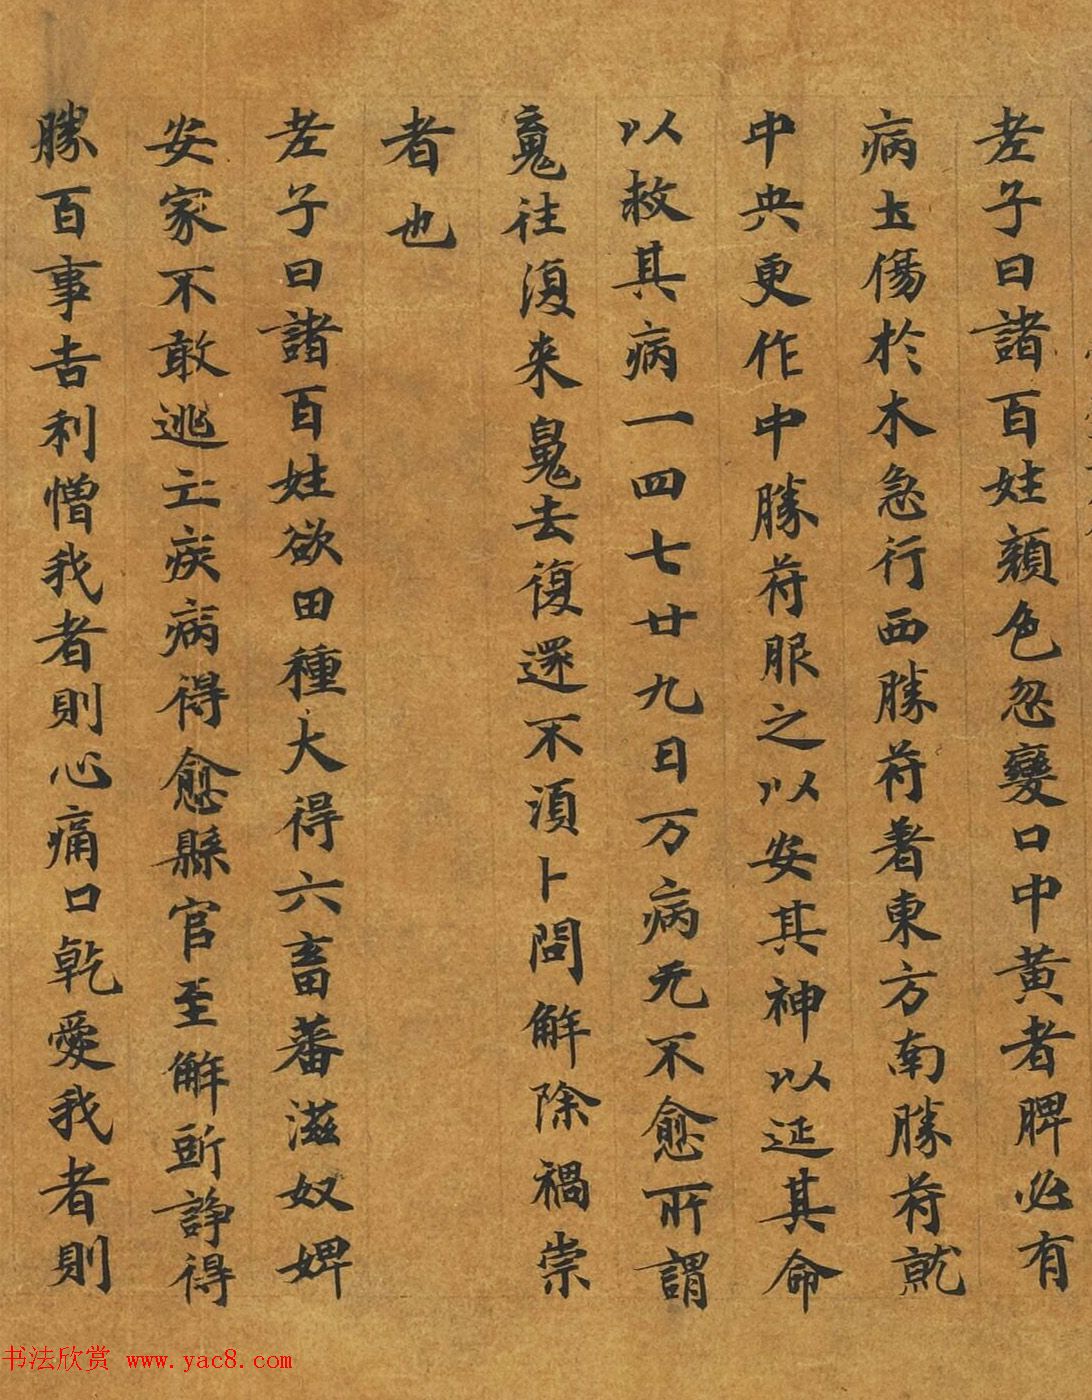 老子曰諸百姓顏色忽變口中黃者脾必有
病土傷於木急行西勝苻著東方南勝苻就
中央更作中勝苻服之以安其神以延其命
以救其病一四七廿九日万病无不愈所謂
鬼往復来鬼去復還不須卜問解除禍祟
者也
老子曰諸百姓欲田種大得六畜蕃滋奴婢
安家不敢逃亡疾病得愈縣官至解斷諍得
勝百事吉利憎我者則心痛口乾愛我者則
书法欣赏 www.yac8.com